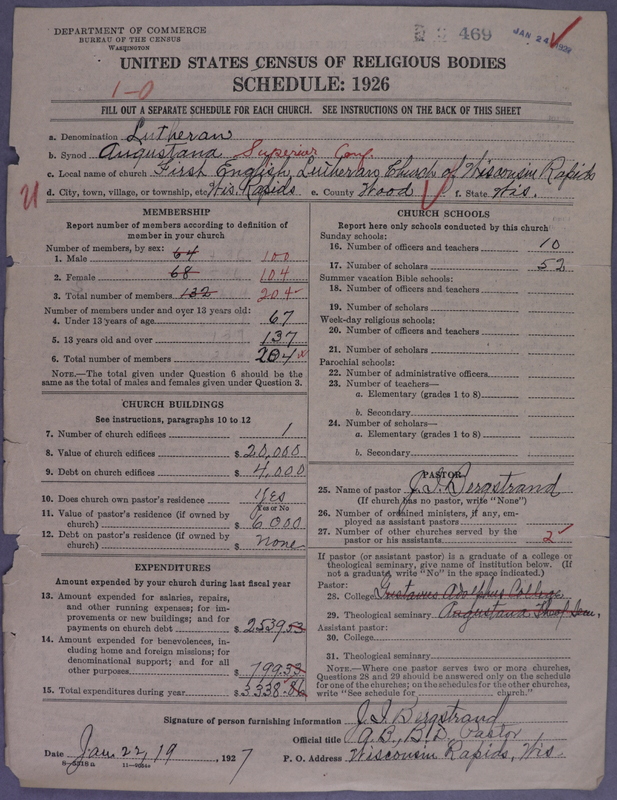 DEPARTMENT OF COMMERCE
BUREAU OF THE CENSUS
WASHINGTON
469
JAN 24
UNITED STATES CENSUS OF RELIGIOUS BODIES
SCHEDULE: 1926
1-0
FILL OUT A SEPARATE SCHEDULE FOR EACH CHURCH. SEE INSTRUCTIONS ON THE BACK OF THIS SHEET
a. Denomination Lutheran
b. Synod Augustana Superior Conf.
c. Local name of church First English Lutheran Church of Wisconsin Rapids
d. City, town, village, or township, etc. Wis. Rapids e. County Wood f. State Wis.
MEMBERSHIP
Report number of members according to definition of member in your church
Number of members, by sex:
1. Male 64 100
2. Female 68 104
3. Total number of members 132 204
Number of members under and over 13 years old:
4. Under 13 years of age 67
5. 13 years old and over 137
6. Total number of members 204
NOTE.—The total given under Question 6 should be the same as the total of males and females given under Question 3.
CHURCH BUILDINGS
See instructions, paragraphs 10 to 12
7. Number of church edifices 1
8. Value of church edifices $ 20,000
9. Debt on church edifices $ 4,000
10. Does church own pastor's residence Yes
Yes or No
11. Value of pastor's residence (if owned by church) $ 6000
12. Debt on pastor's residence (if owned by church) $ None
EXPENDITURES
Amount expended by your church during last fiscal year
13. Amount expended for salaries, repairs, and other running expenses; for improvements or new buildings; and for payments on church debt $ 2539.53
14. Amount expended for benevolences, including home and foreign missions; for denominational support; and for all other purposes $ 799.33
15. Total expenditures during year $ 3338.86
CHURCH SCHOOLS
Report here only schools conducted by this church
Sunday schools:
16. Number of officers and teachers 10
17. Number of scholars 52
Summer vacation Bible schools:
18. Number of officers and teachers
19. Number of scholars
Week-day religious schools:
20. Number of officers and teachers
21. Number of scholars
Parochial schools:
22. Number of administrative officers
23. Number of teachers—
a. Elementary (grades 1 to 8)
b. Secondary
24. Number of scholars—
a. Elementary (grades 1 to 8)
b. Secondary
PASTOR
25. Name of pastor J. I. Bergstrand
(If church has no pastor, write "None")
26. Number of ordained ministers, if any, employed as assistant pastors
27. Number of other churches served by the pastor or his assistants 2
If pastor (or assistant pastor) is a graduate of a college or theological seminary, give name of institution below. (If not a graduate write "No" in the space indicated.)
Pastor:
28. College Gustavus Adolphus College
29. Theological seminary Augustana Theol Sem.
Assistant pastor:
30. College
31. Theological seminary
NOTE.—Where one pastor serves two or more churches, Questions 28 and 29 should be answered only on the schedule for one of the churches; on the schedules for the other churches, write "See schedule for church."
Signature of person furnishing information J. I. Bergstrand
Official title A.B., B.D. Pastor
Date Jan. 22, 19 1927 P. O. Address Wisconsin Rapids, Wis.